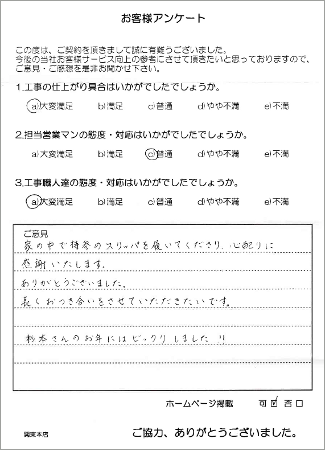 お客様アンケート
この度は、ご契約を頂きまして誠に有難うございました。
今後の当社お客様サービス向上の参考にさせて頂きたいと思っておりますので、
ご意見・ご感想を是非お聞かせ下さい。
1.工事の仕上がり具合はいかがでしたでしょうか。
a)大変満足 b)満足 c)普通 d)やや不満 e)不満
2.担当営業マンの態度・対応はいかがでしたでしょうか。
a)大変満足 b)満足 c)普通 d)やや不満 e)不満
3.工事職人達の態度・対応はいかがでしたでしょうか。
a)大変満足 b)満足 c)普通 d)やや不満 e)不満
ご意見
家の中で持参のスリッパを履いてくださり、心配りに
感謝いたします。
ありがとうございました。
長くおつき合いをさせていただきたいです。
杉本さんのお年にはビックリしました!!
ホームページ掲載 可 否
関東本店
ご協力、ありがとうございました。